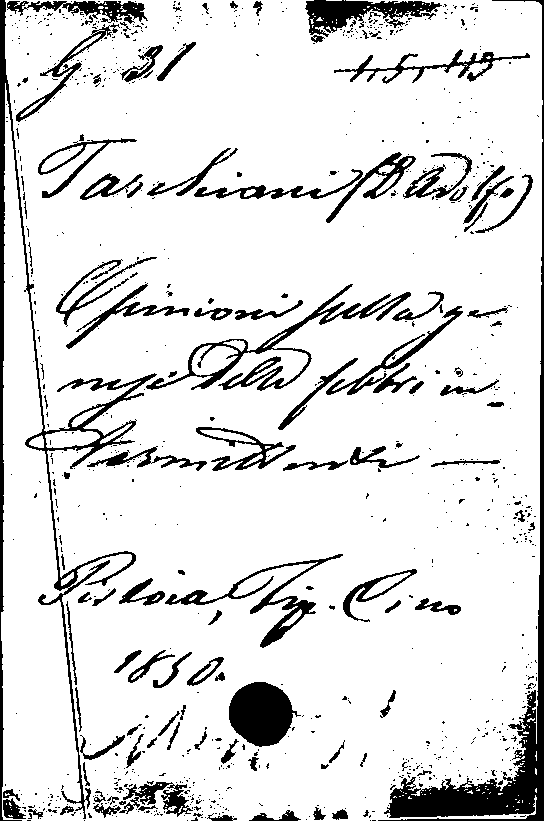 G. 31 1,5,113
Taschiani (D. Adolfo)
Opinioni sulla ge-
nesi delle febbri in-
termittenti —
Pistoia, Tip. Cino
1850.